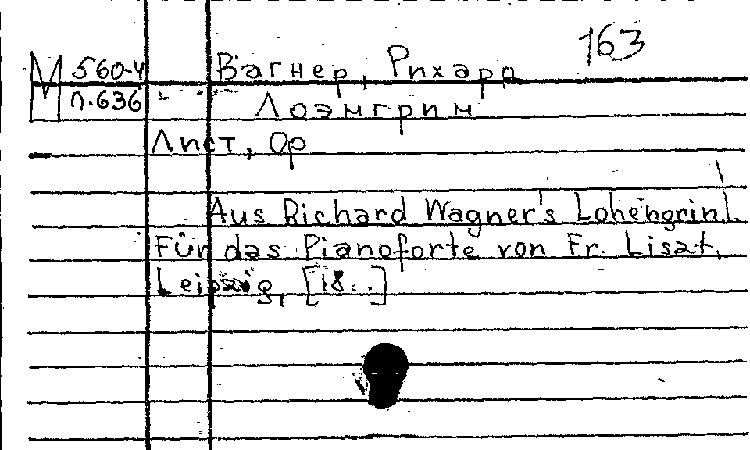 163
М 560-4 Вагнер, Рихард
п.636 Лоэнгрин
Лист, Фр
Aus Richard Wagner's Lohengrin.
Für das Pianoforte von Fr. Liszt,
Leipzig, [18..]